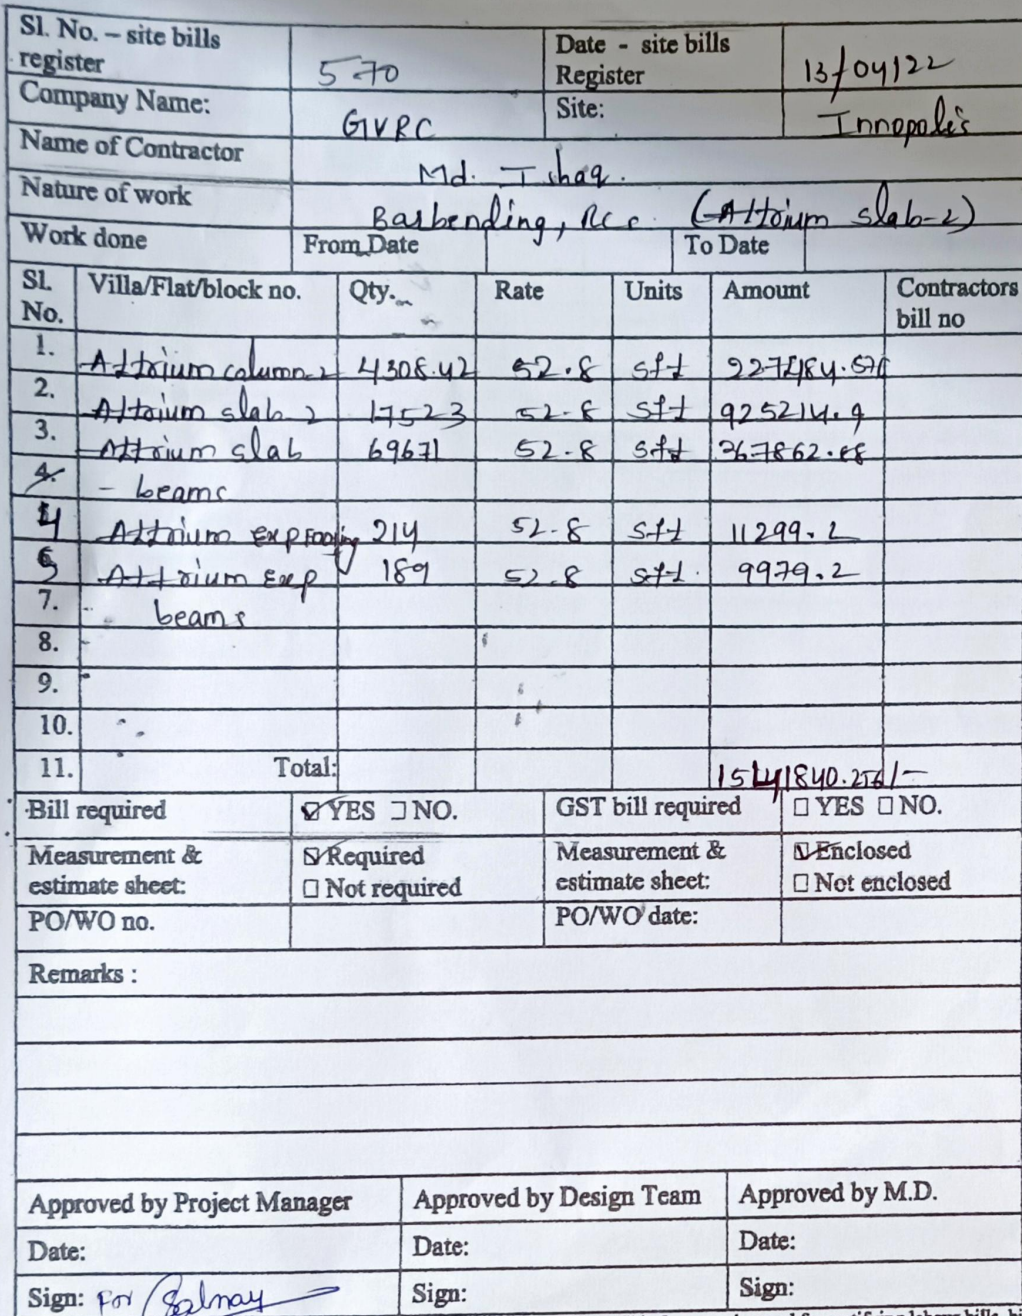 Sl. No. – site bills register 570 Date - site bills Register 13/04/22
Company Name: GVRC Site: Innopolis
Name of Contractor Md. Ishaq.
Nature of work Barbending, Rcc. (Attrium slab-2)
Work done From Date To Date
Sl. No. Villa/Flat/block no. Qty. Rate Units Amount Contractors bill no
1. Attrium column-2 4308.42 52.8 sft 227484.576
2. Attrium slab-2 17523 52.8 sft 925214.4
3. Attrium slab 69671 52.8 sft 367862.88
4. - beams
4 Attrium exp footing 214 52.8 sft 11299.2
5 Attrium exp 189 52.8 sft. 9979.2
7. beams
8.
9.
10.
11. Total: 1541840.256/-
Bill required ☑ YES ☐ NO. GST bill required ☐ YES ☐ NO.
Measurement & estimate sheet: ☑ Required ☐ Not required Measurement & estimate sheet: ☑ Enclosed ☐ Not enclosed
PO/WO no. PO/WO date:
Remarks :
Approved by Project Manager Approved by Design Team Approved by M.D.
Date: Date: Date:
Sign: For Sign: Sign: